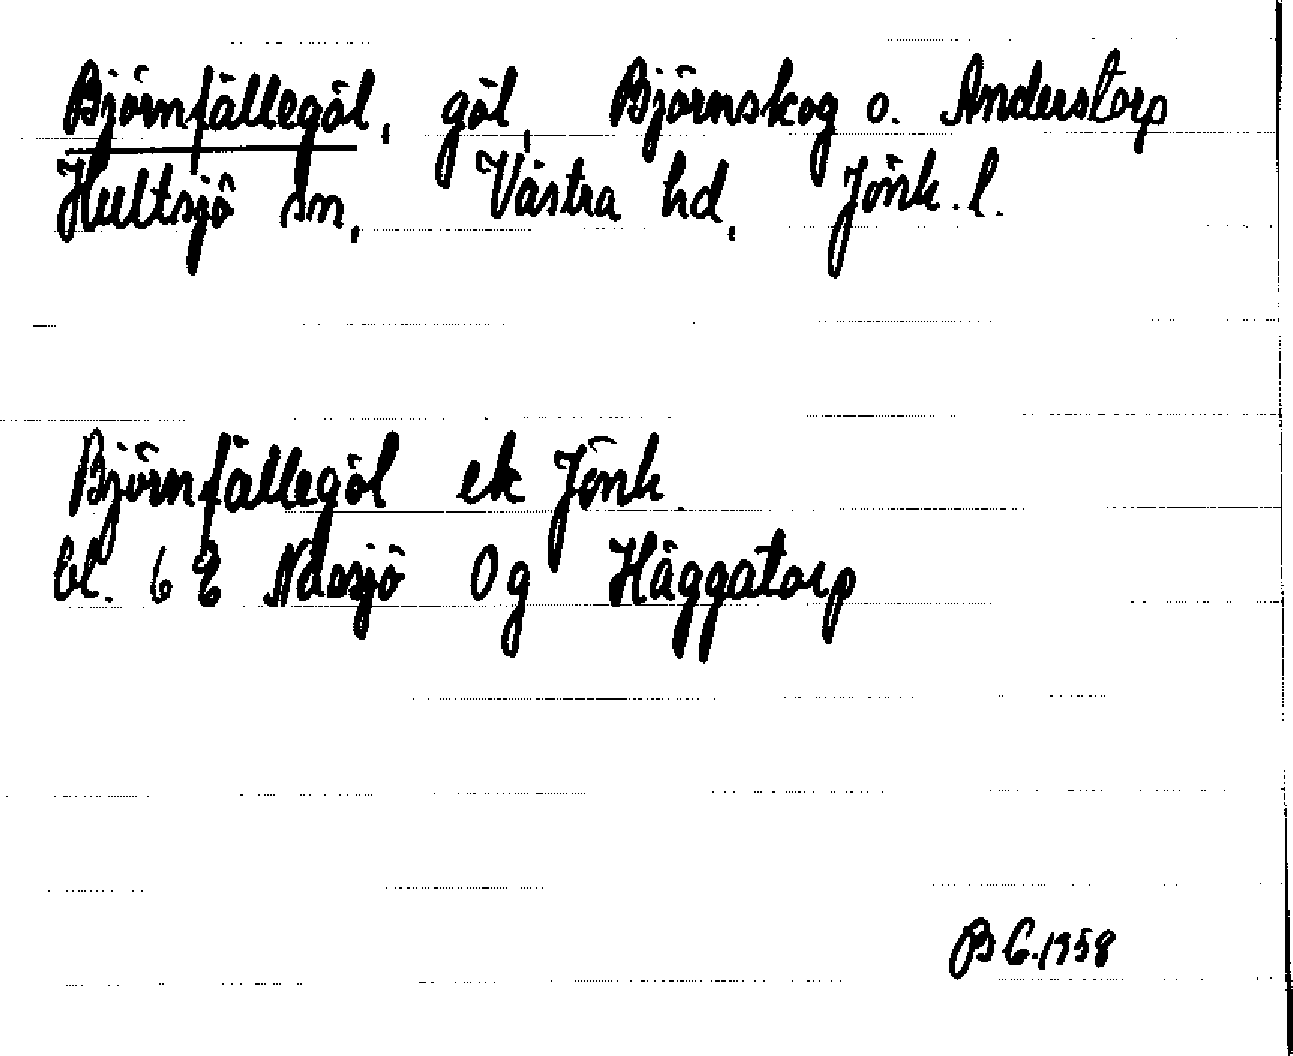 Björnfällegöl, göl, Björnskog o. Anderstorp
Hultsjö sn, Västra hd, Jönk. l.
Björnfällegöl ek Jönk.
bl. 6 E Nässjö 0g Häggatorp
BG.1958